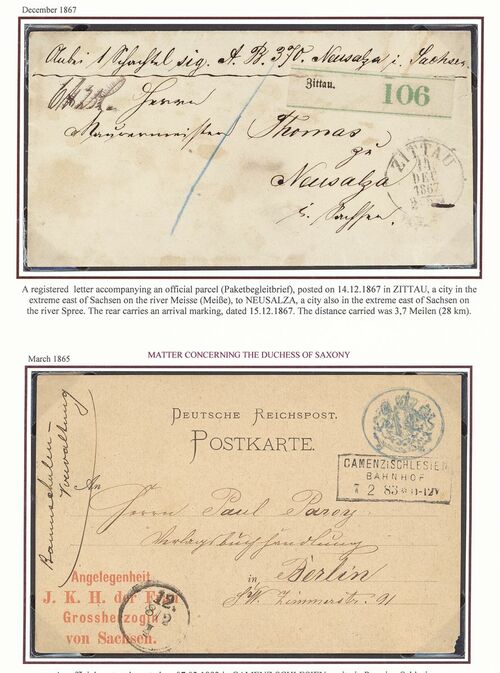 December 1867
Anbei 1 Schachtel sig. A. B. 370. Neusalza i. Sachsen
Herrn
Zittau.
106
Maurermeister Thomas
zu
Neusalza
i. Sachsen.
ZITTAU
14
DEC
1867
A registered letter accompanying an official parcel (Paketbegleitbrief), posted on 14.12.1867 in ZITTAU, a city in the
extreme east of Sachsen on the river Meisse (Meiße), to NEUSALZA, a city also in the extreme east of Sachsen on
the river Spree. The rear carries an arrival marking, dated 15.12.1867. The distance carried was 3,7 Meilen (28 km).
March 1865
MATTER CONCERNING THE DUCHESS OF SAXONY
Baumschulen-
Verwaltung
DEUTSCHE REICHSPOST.
POSTKARTE.
CAMENZ i SCHLESIEN
BAHNHOF
7 2 83 11-12V
An
Herrn Paul Parey
Verlagsbuchhandlung
in Berlin
S.W. Zimmerstr. 91
Angelegenheit
J. K. H. der Frau
Grossherzogin
von Sachsen.
12
8/2